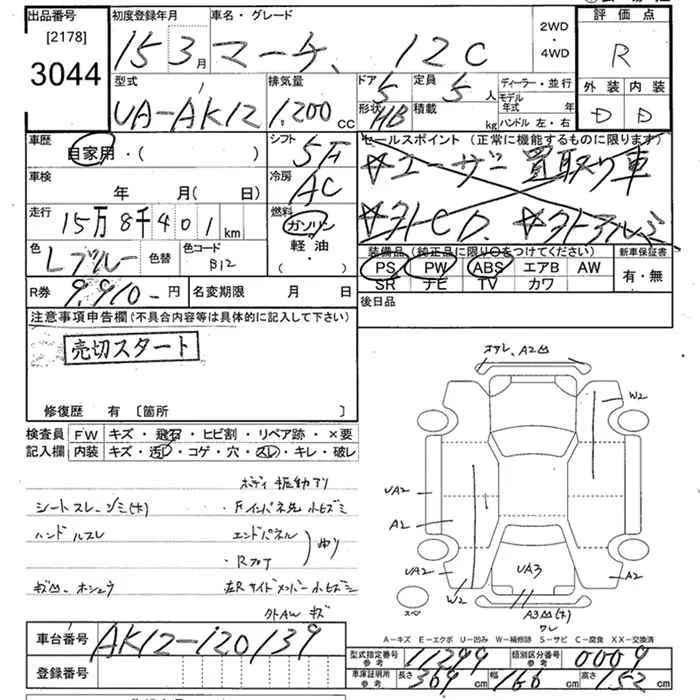 出品番号 初度登録年月 車名・グレード 評価点
[2178] 2WD
3044 15 3月 マーチ 12C ・ R
4WD
型式 排気量 ドア 定員 ディーラー・並行 外装 内装
UA-AK12 1,200cc 5 5人 モデル年式 年 D D
形状 HB 積載 kg ハンドル 左・右
車歴 自家用・( ) シフト 5F セールスポイント (正常に機能するものに限ります)
☆ユーザー買取り車
車検 年 月( 日) 冷房 AC
走行 15万8千401km 燃料 ☆外CD ☆外アルミ
ガソリン
色 Lブルー 色替 色コード B12 軽油・( ) 装備品(純正品に限り○をつけてください) 新車保証書
PS PW ABS エアB AW 有・無
R券 9,910円 名変期限 月 日 SR ナビ TV カワ
注意事項申告欄(不具合内容等は具体的に記入して下さい) 後日品
売切スタート
修復歴 有 〔箇所 〕
検査員記入欄 FW キズ・飛石・ヒビ割・リペア跡・×要
内装 キズ・汚レ・コゲ・穴・スレ・キレ・破レ
A2
W2
UA2
A2
ボディ
シートスレ・シミ(木)
ハンドルスレ エンドパネル
・Rフロア
左Rサイドメンバー
外AW キズ
UA2
W2
UA3
A2
スペ
A3
ワレ
A-キズ E-エクボ U-凹み W-補修跡 S-サビ C-腐食 XX-交換済
車台番号 AK12-120139 型式指定番号 参考 11299 類別区分番号 参考 0009
登録番号 車庫証明用 参考 長さ 369cm 幅 166cm 高さ 152cm